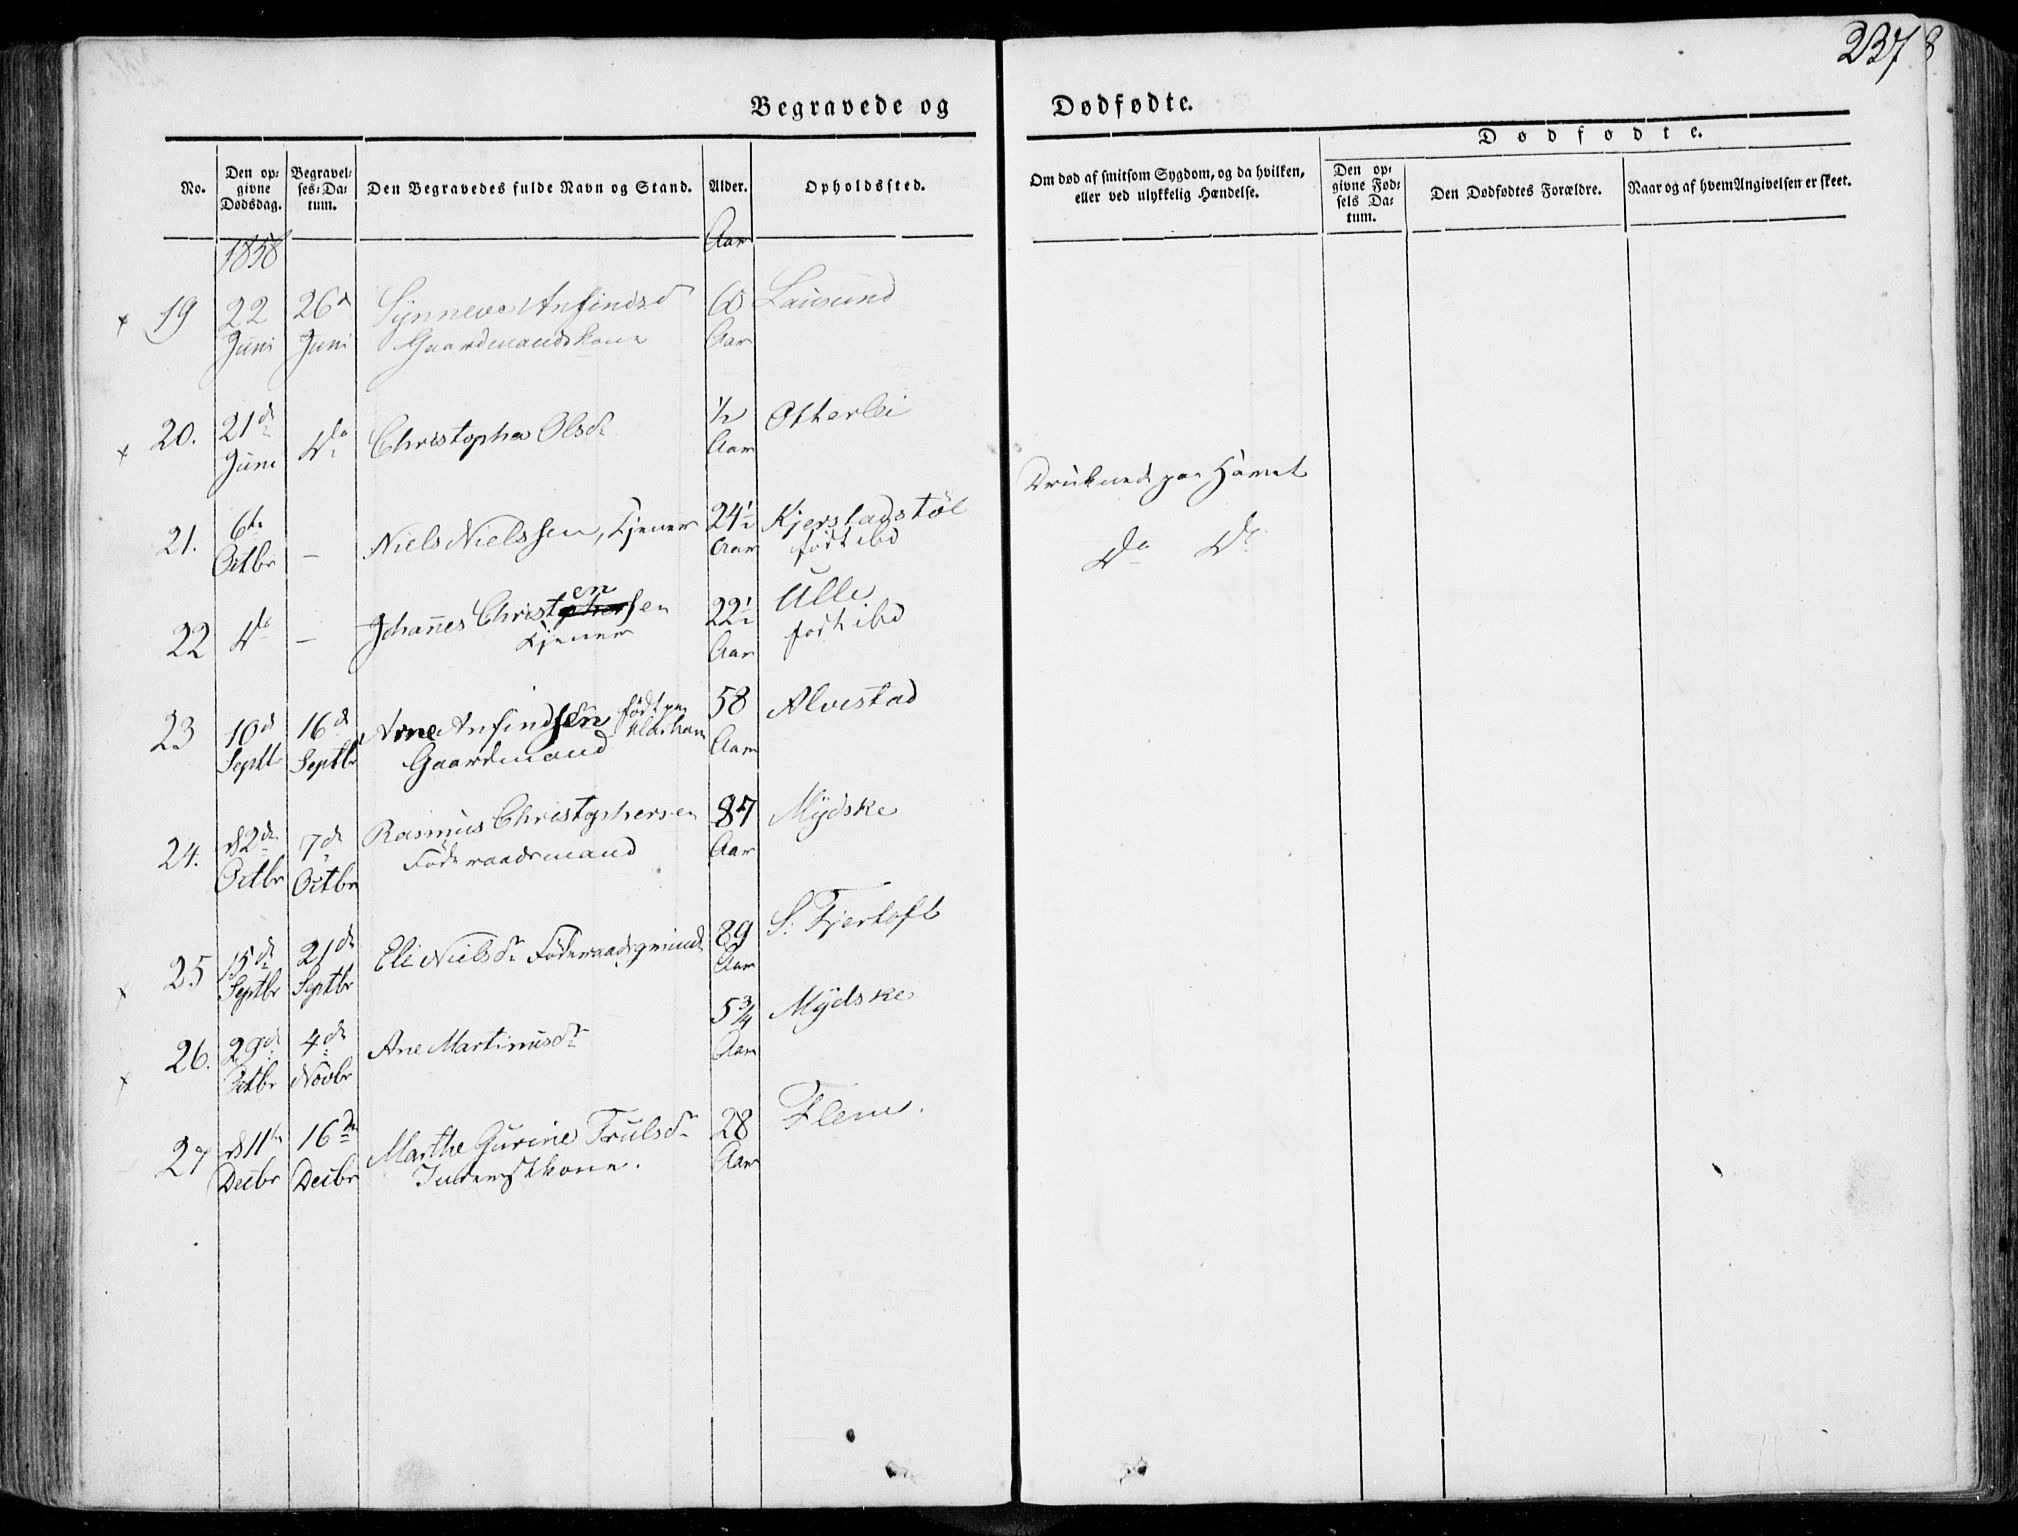 237
Begravede og Dødfødte.
Dødfødte.
No.
Den op=
givne
Dødsdag.
Begravel=
ses=Da=
tum.
Den Begravedes fulde Navn og Stand.
Alder.
Opholdssted.
Om død af smitsom Sygdom, og da hvilken,
eller ved ulykkelig Hændelse.
Den op=
givne Fød=
sels Da=
tum.
Den Dødfødtes Forældre.
Naar og af hvem Angivelsen er skeet.
1858
Aar
19 22 Juni 26d Juni Synneve Anfindsd
Gaardmandskone
Aar
Lausund
20. 21de Juni Do Christopher Olsen ½ Aar Otterlei
21. 6te Octbr – Niels Nielssen, Tjener 24½ Aar Kjerstadstøl
født ibd
Druknede paa Havet
22 Do – Johannes Christensen
Tjener
22½ Aar
Ulle
født ibd
Do Do
23 10d Septbr 16d Septbr Arne Anfindsen født paa
Gaardmand
58 Aar
Alvestad
24. d 2de Octbr 7de Octbr Rasmus Christophersen
Føderaadsmand
87 Aar
Mydske
25 15de Septbr 21de Septbr Eli Nielsdr Føderaads 89 Aar S. Fjertoft
26. 29de Octbr 4de Novbr Ane Martinusdr 5¾ Aar Mydske
27 d 11te Decbr 16de Decbr Marthe Gurine Trulsdr
Inderstkone.
28 Aar
Flem.